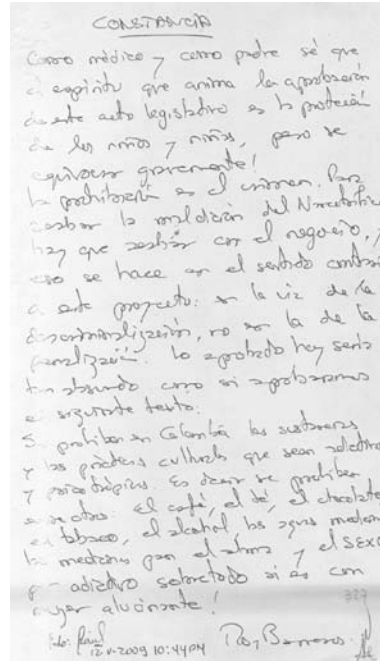 CONSTANCIA
Como médico y como padre sé que
el espíritu que anima la aprobación
de este acto legislativo es la protección
de los niños y niñas, pero se
equivocan gravemente!
la prohibición es el crimen. Para
acabar la maldición del Narcotráfico
hay que acabar con el negocio, y
eso se hace en el sentido contrario
a este proyecto: en la vía de la
descriminalización, no en la de la
penalización. Lo aprobado hoy sería
tan absurdo como si aprobaramos
el siguiente texto:
Se prohiben en Colombia las sustancias
y las prácticas culturales que sean adictivas
y psicotrópicas. Es decir se prohiben
entre otras: El café, el té, el chocolate
el tabaco, el alcohol las aguas
las medicinas para el alma y el SEXO
por adictivo sobretodo si es con
mujer alucinante!
327
12-V-2009 10:44 PM Roy Barreras